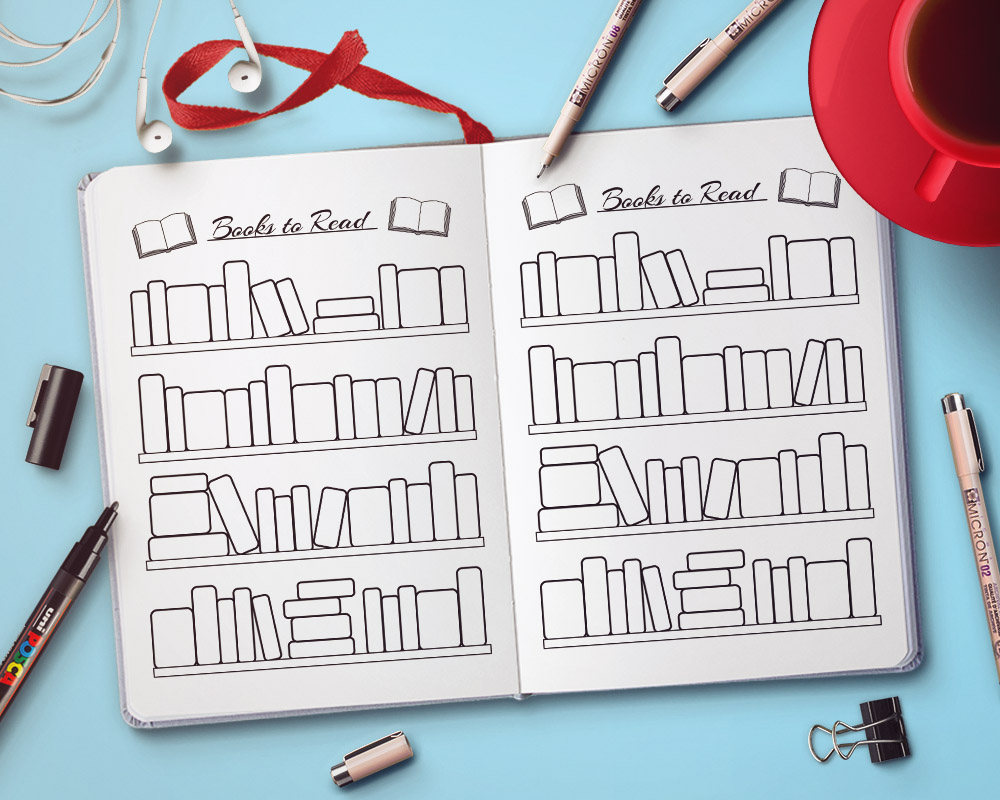 Books to Read
Books to Read
MICRON 08
MICRON
MICRON 02
uni
POSCA